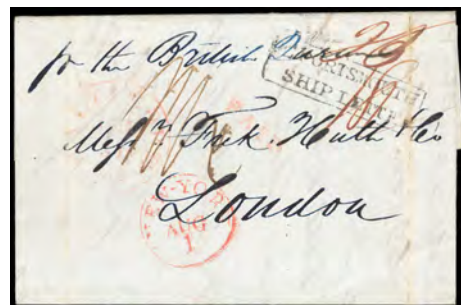 for the British Queen
PORTSMOUTH
SHIP LETTER
PAID
Messrs. Fredk. Huth & Co
London
NEW-YORK
AUG
1